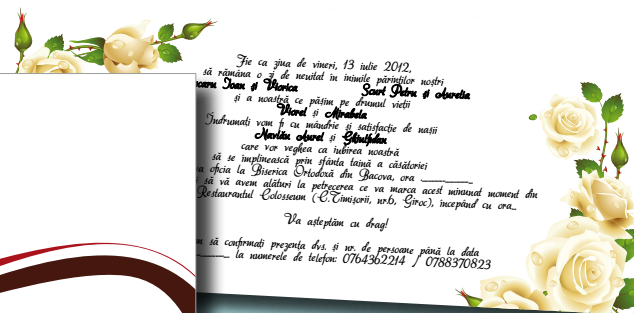 Fie ca ziua de vineri, 13 iulie 2012,
să rămâna o zi de neuitat în inimile părinților noștri
Ioan și Viorica Scurt Petru și Aurelia
și a noastră ce pășim pe drumul vieții
Viorel și Mirabela
Îndrumați vom fi cu mândrie și satisfacție de nașii
Aurel și
care vor veghea ca iubirea noastră
să se împlinească prin sfânta taină a căsătoriei
oficia la Biserica Ortodoxă din Bacova, ora
să vă avem alături la petrecerea ce va marca acest minunat moment din
Restaurantul Colosseum (C.Timișorii, nr.6, Giroc), începând cu ora...
Va așteptăm cu drag!
să confirmați prezența dvs. și nr. de persoane până la data
la numerele de telefon: 0764362214 / 0788370823